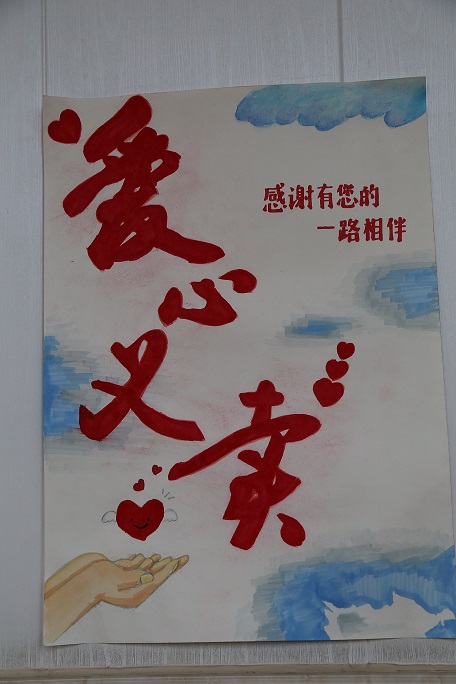 爱心义卖
感谢有您的
一路相伴